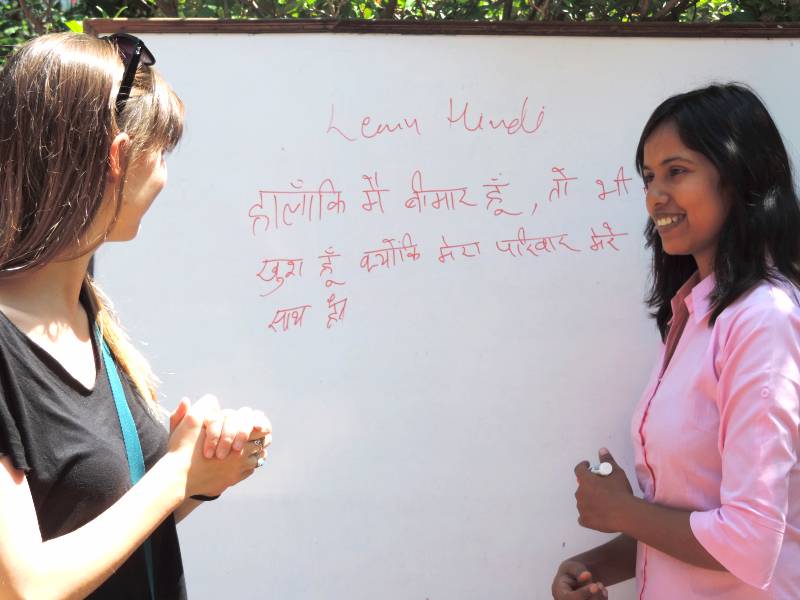 Learn Hindi
हालाँकि मै बीमार हूँ, तो भी
खुश हूँ क्योंकि मेरा परिवार मेरे
साथ है।